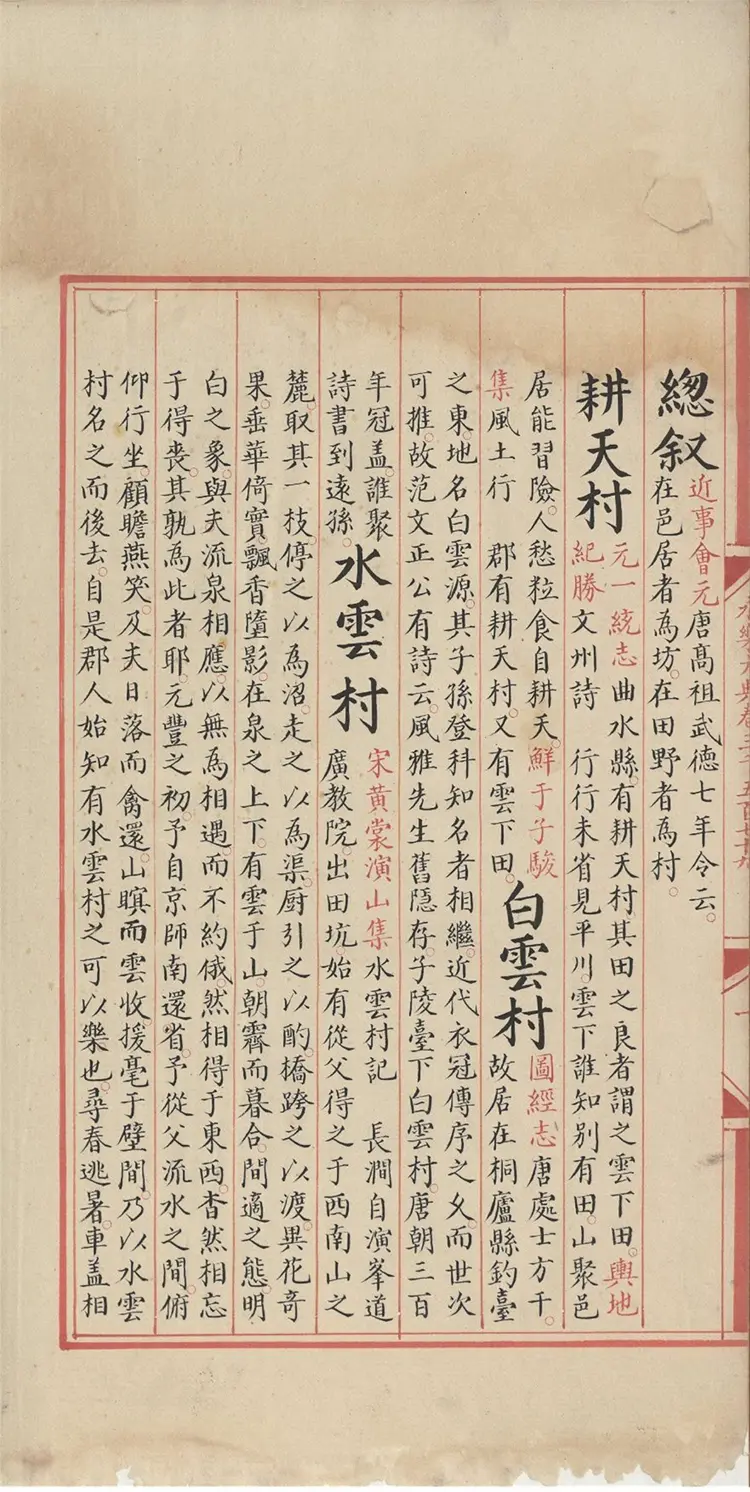 永樂大典卷三千五百七十九
一
緫叙
近事會元唐髙祖武德七年令云。
在邑居者為坊。在田野者為村。
耕天村
元一統志 曲水縣。有耕天村其田之良者謂之雲下田。輿地
紀勝文州詩 行行未省見平川。雲下誰知別有田。山聚邑
居能習險。人愁粒食自耕天。鮮于子駿
集風土行 郡有耕天村。又有雲下田。
白雲村
圖經志唐處士方干。
故居在桐廬縣釣臺
之東。地名白雲源。其子孫登科知名者相繼。近代衣冠傳序之久。而世次
可推。故范文正公有詩云。風雅先生舊隱存。子陵臺下白雲村。唐朝三百
年冠盖。誰聚
詩書到遠孫。
水雲村
宋黄裳演山集水雲村記 長澗自演峯道
廣教院。出田坑。始有從父得之于西南山之
麓。取其一枝。停之以為沼。走之以為渠。厨引之以酌。橋跨之以渡。異花奇
果。垂華倚實。飄香墮影。在泉之上下。有雲于山。朝霽而暮合。間適之態。明
白之象。與夫流泉相應。以無為相遇。而不約。俄然相得于東西。杳然相忘
于得喪。其孰為此者耶。元豐之初。予自京師南還。省予從父流水之間。俯
仰行坐。顧瞻燕笑。及夫日落而禽還。山暝而雲收。援毫于壁間。乃以水雲
村名之而後去。自是郡人始知有水雲村之可以樂也。尋春逃暑。車盖相